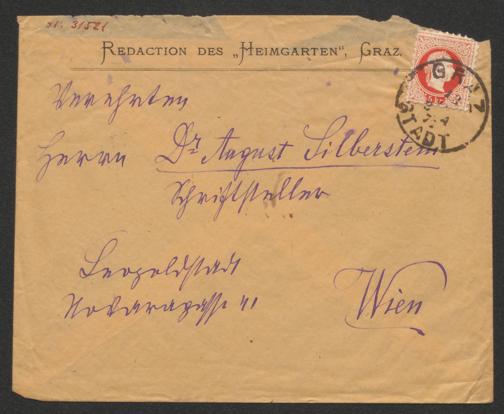 N. 31521
REDACTION DES „HEIMGARTEN“, GRAZ.
GRAZ
STADT
Verehrten
Herrn Dr. August Silberstein
Schriftsteller
Leopoldstadt
Novaragasse 41
Wien